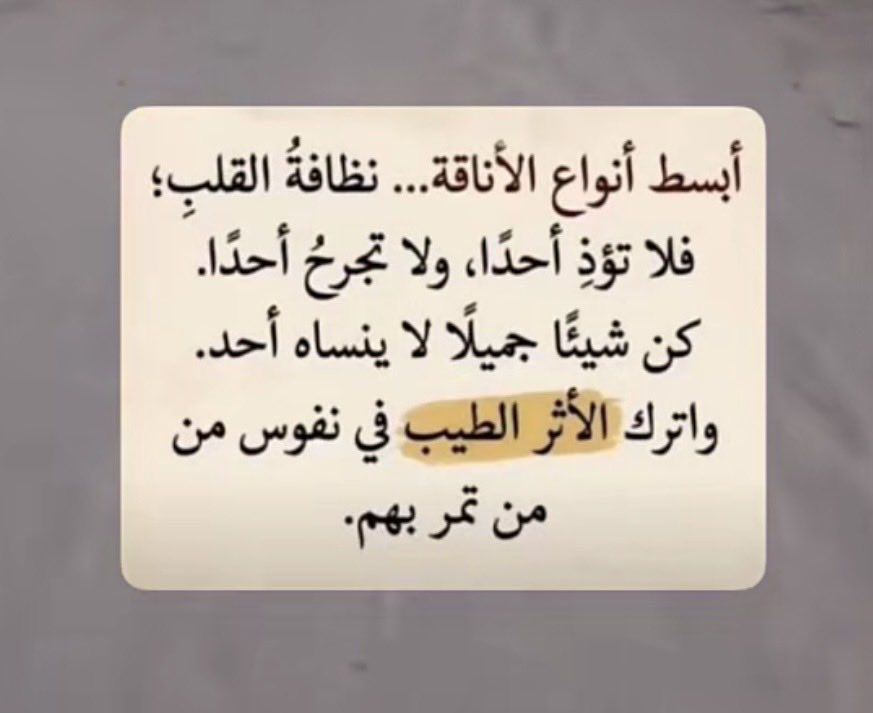 أبسط أنواع الأناقة... نظافةُ القلبِ؛
فلا تؤذِ أحدًا، ولا تجرحُ أحدًا.
كن شيئًا جميلًا لا ينساه أحد.
واترك الأثر الطيب في نفوس من
من تمر بهم.